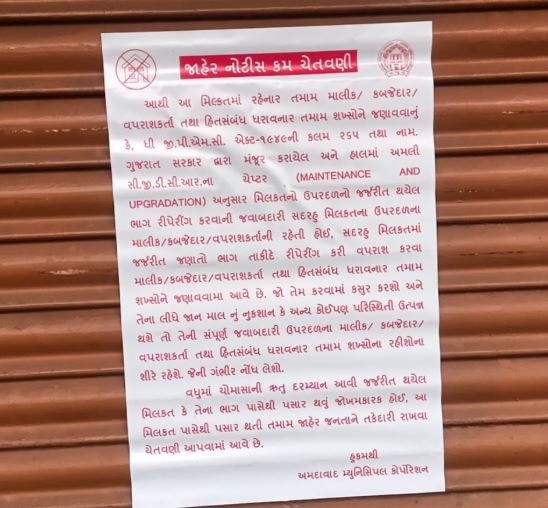 જાહેર નોટીસ કમ ચેતવણી
આથી આ મિલકતમાં રહેનાર તમામ માલીક/ કબજેદાર/
વપરાશકર્તા તથા હિતસંબંધ ધરાવનાર તમામ શખ્સોને જણાવવાનું
કે, ધી જી.પી.એમ.સી. એક્ટ-૧૯૪૯ની કલમ ૨૬૫ તથા નામ.
ગુજરાત સરકાર દ્વારા મંજૂર કરાયેલ અને હાલમાં અમલી
સી.જી.ડી.સી.આર.ના ચેપ્ટર (MAINTENANCE AND
UPGRADATION) અનુસાર મિલકતનો ઉપરદળનો જર્જરીત થયેલ
ભાગ રીપેરીંગ કરવાની જવાબદારી સદરહુ મિલકતના ઉપરદળના
માલીક/કબજેદાર/વપરાશકર્તાની રહેતી હોઈ, સદરહુ મિલકતમાં
જર્જરીત જણાતો ભાગ તાકીદે રીપેરીંગ કરી વપરાશ કરવા
માલીક/કબજેદાર/વપરાશકર્તા તથા હિતસંબંધ ધરાવનાર તમામ
શખ્સોને જણાવવામા આવે છે. જો તેમ કરવામાં કસુર કરશો અને
તેના લીધે જાન માલ નું નુકશાન કે અન્ય કોઈપણ પરિસ્થિતી ઉત્પન્ન
થશે તો તેની સંપૂર્ણ જવાબદારી ઉપરદળના માલીક/ કબજેદાર/
વપરાશકર્તા તથા હિતસંબંધ ધરાવનાર તમામ શખ્સોના રહીશોના
શીરે રહેશે. જેની ગંભીર નોંધ લેશો.
વધુમાં ચોમાસાની ઋતુ દરમ્યાન આવી જર્જરીત થયેલ
મિલકત કે તેના ભાગ પાસેથી પસાર થવું જોખમકારક હોઈ, આ
મિલકત પાસેથી પસાર થતી તમામ જાહેર જનતાને તકેદારી રાખવા
ચેતવણી આપવામાં આવે છે.
હુકમથી
અમદાવાદ મ્યુનિસિપલ કોર્પોરેશન